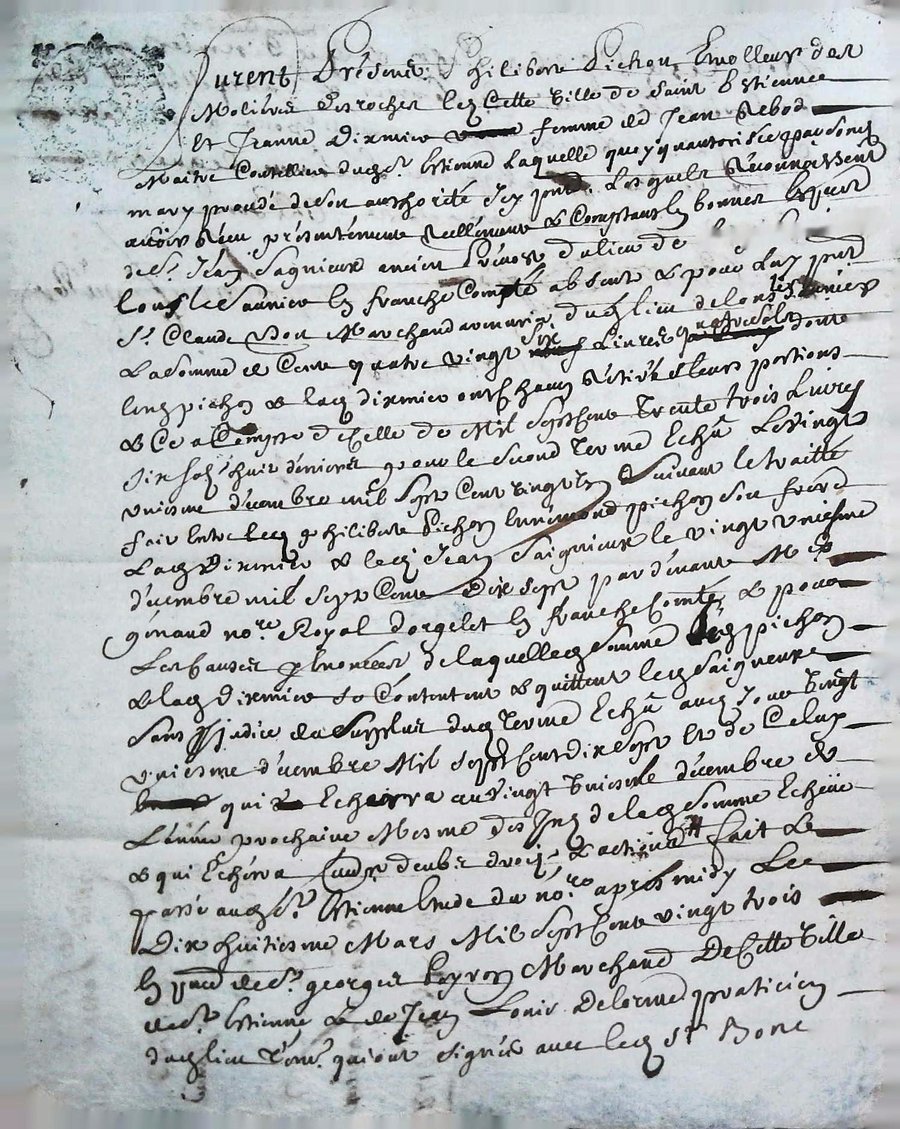 furent présens philibert Pichon Emolleur des
Molieres des rocher lez Cette Ville de Saint Estienne
Et Jeanne dirmier femme de Jean Rebod
Maitre Coutellier dudt St Estienne Laquelle quoy qu'autorisée par sond
mary procède de son authorité icy pnt Lesquels Reconnoissent
avoir Receu présentement Reellement & Comptant En bonnes Espèces
de Sr Jean Sagnieux ancien Prévost du lieu de
lons le Saunier En franche Compté absent & pour Luy pnt
Sr Claude Marchand dudt lieu de lons le Sonier
La Somme de Cent quatre vingt six Livres quatre sols dont
Led pichon & lad dirmier ont Chacun Retiré leurs portions
& Ce a Compte d'Celle de Mil Sept Cent Trente trois Livres
Six sols huit deniers pour le Second Terme Echu Le vingt
uniesme décembre mil Sept Cent vingt Suivant le traitté
fait Entre led philibert Pichon Enémond pichon Son frère
Lad Dirmier & led Jean Saignieux le vingt uniesme
décembre mil Sept Cent Dix Sept par devant Me
girard nore Royal d'orgelet En franche Comté, & pour
Les Causes y Enoncées de laquelle Somme Led pichon
& lad dirmier Se Contentent & quittent led Saignieux
Sans préjudice du Surplus dud terme Echu aud Jour vingt
uniesme décembre Mil Sept Cent Dix Sept Et de Celuy
qui Echerra au vingt uniesme décembre de
L'année prochaine Mesme des Int de lad Somme Echeue
& qui Echerra droits & actions fait &
passé audt St Estienne Etude du nore après midy Le
Dix huitiesme Mars Mil Sept Cent vingt trois
En pnce de Sr georges peyron Marchand De Cette Ville
de St Estienne & de Jean Louis Delorme praticien
dudt lieu temo. qui ont Signés avec led Sr Bone